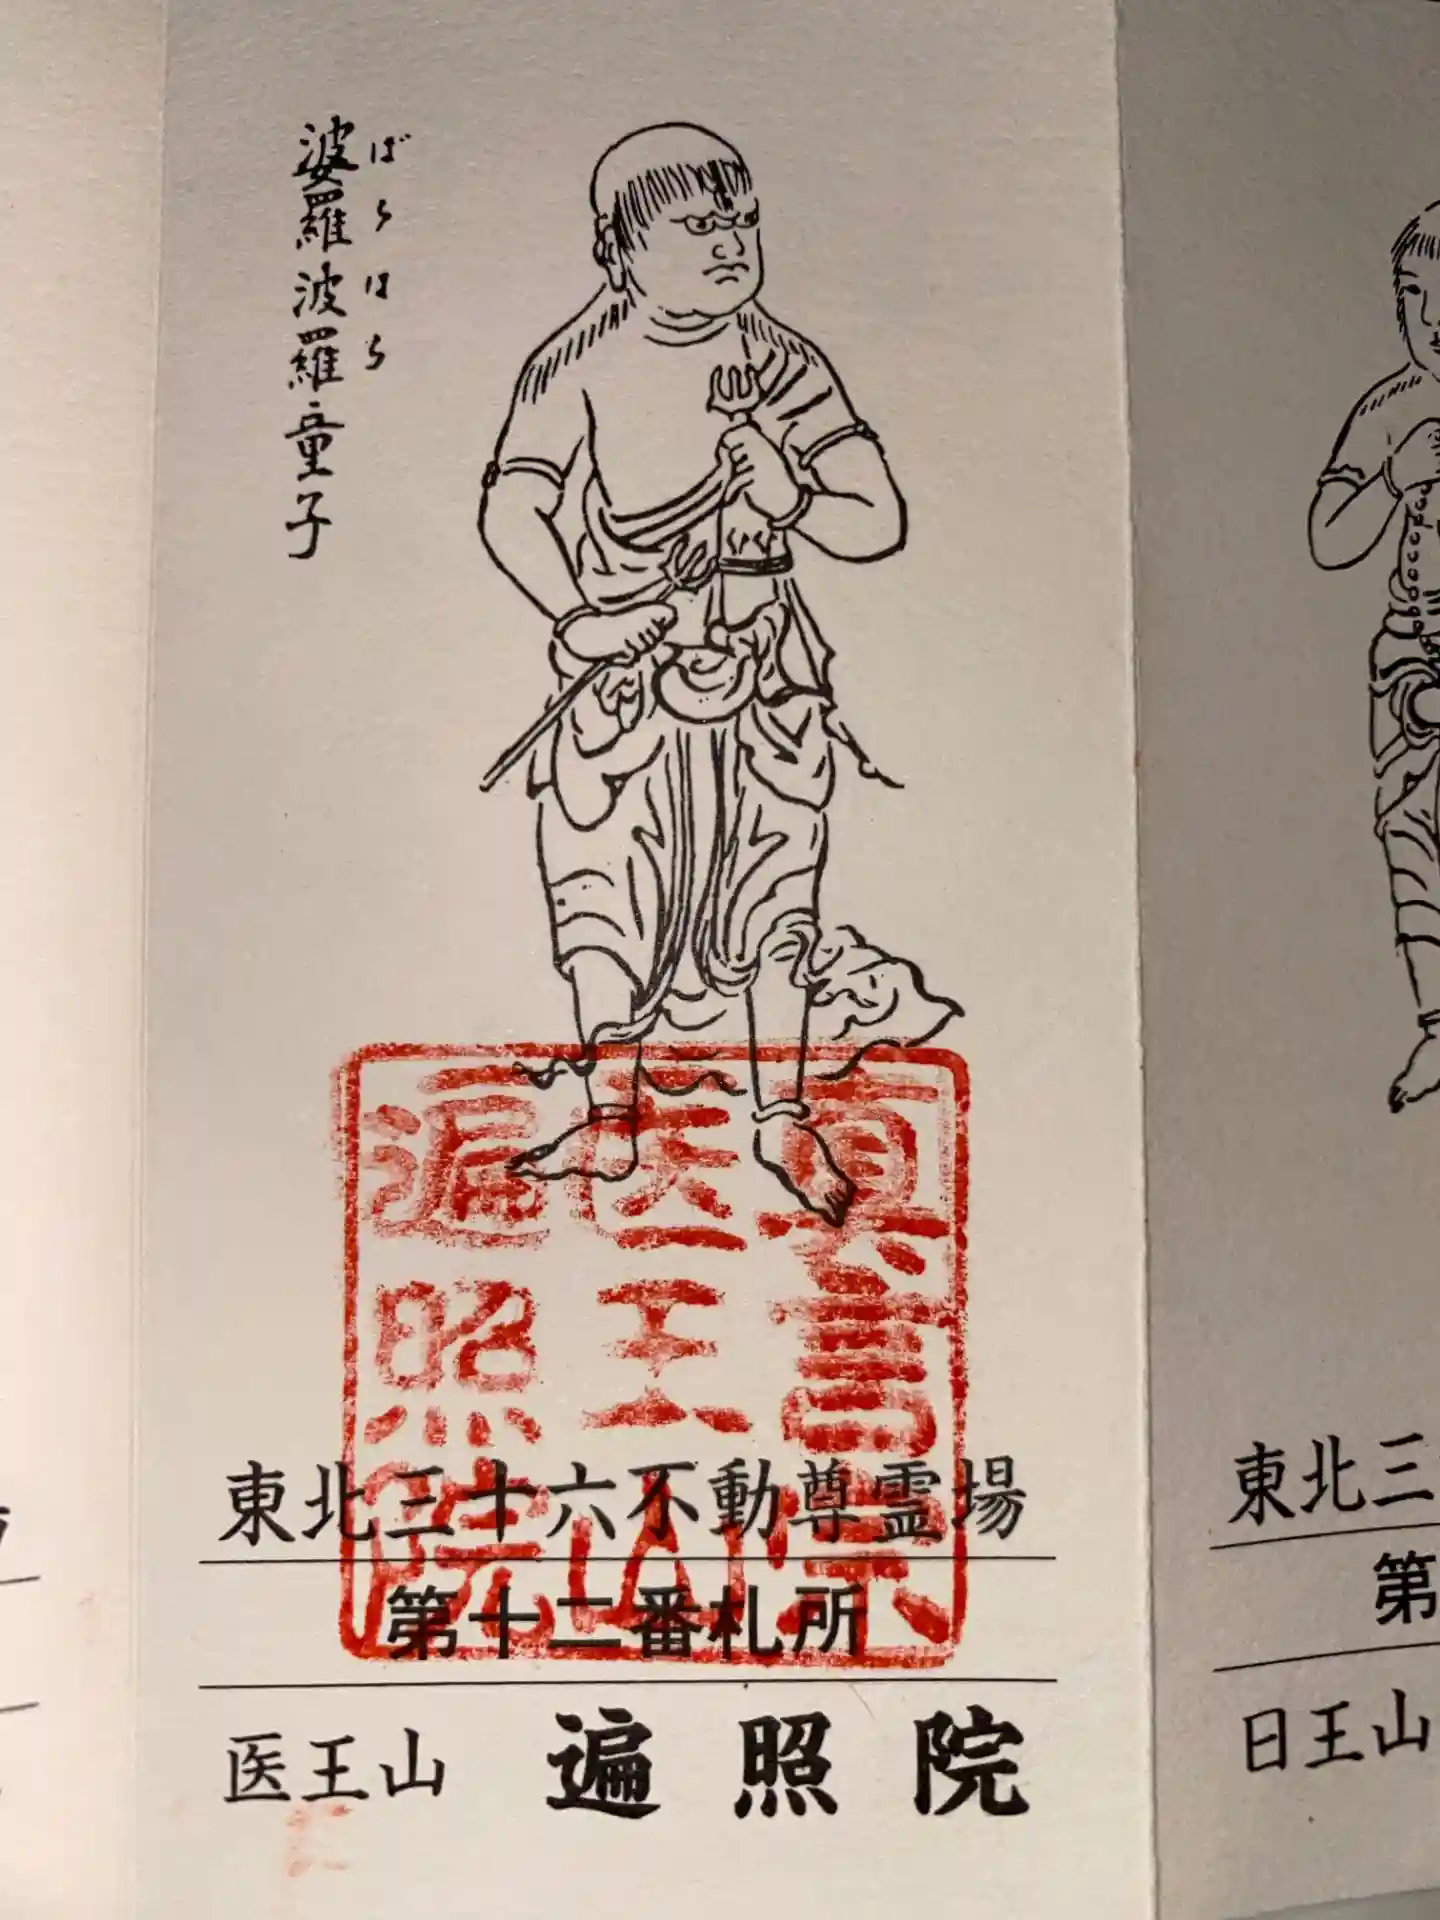 婆羅波羅童子
ばらはら
真言宗
医王山
遍照院
東北三十六不動尊霊場
第十二番札所
医王山 遍照院
東北三
第
日王山